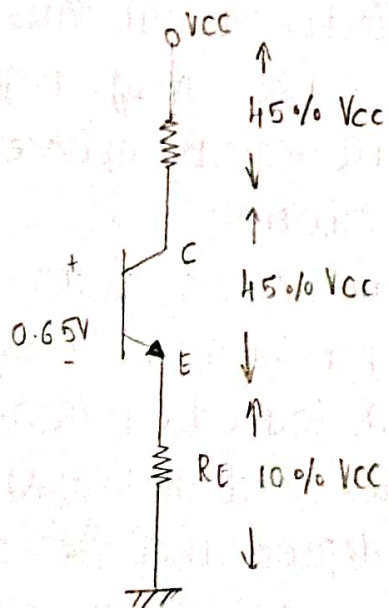 VCC
45% VCC
C
+
45% VCC
0.65V
-
E
RE 10% VCC